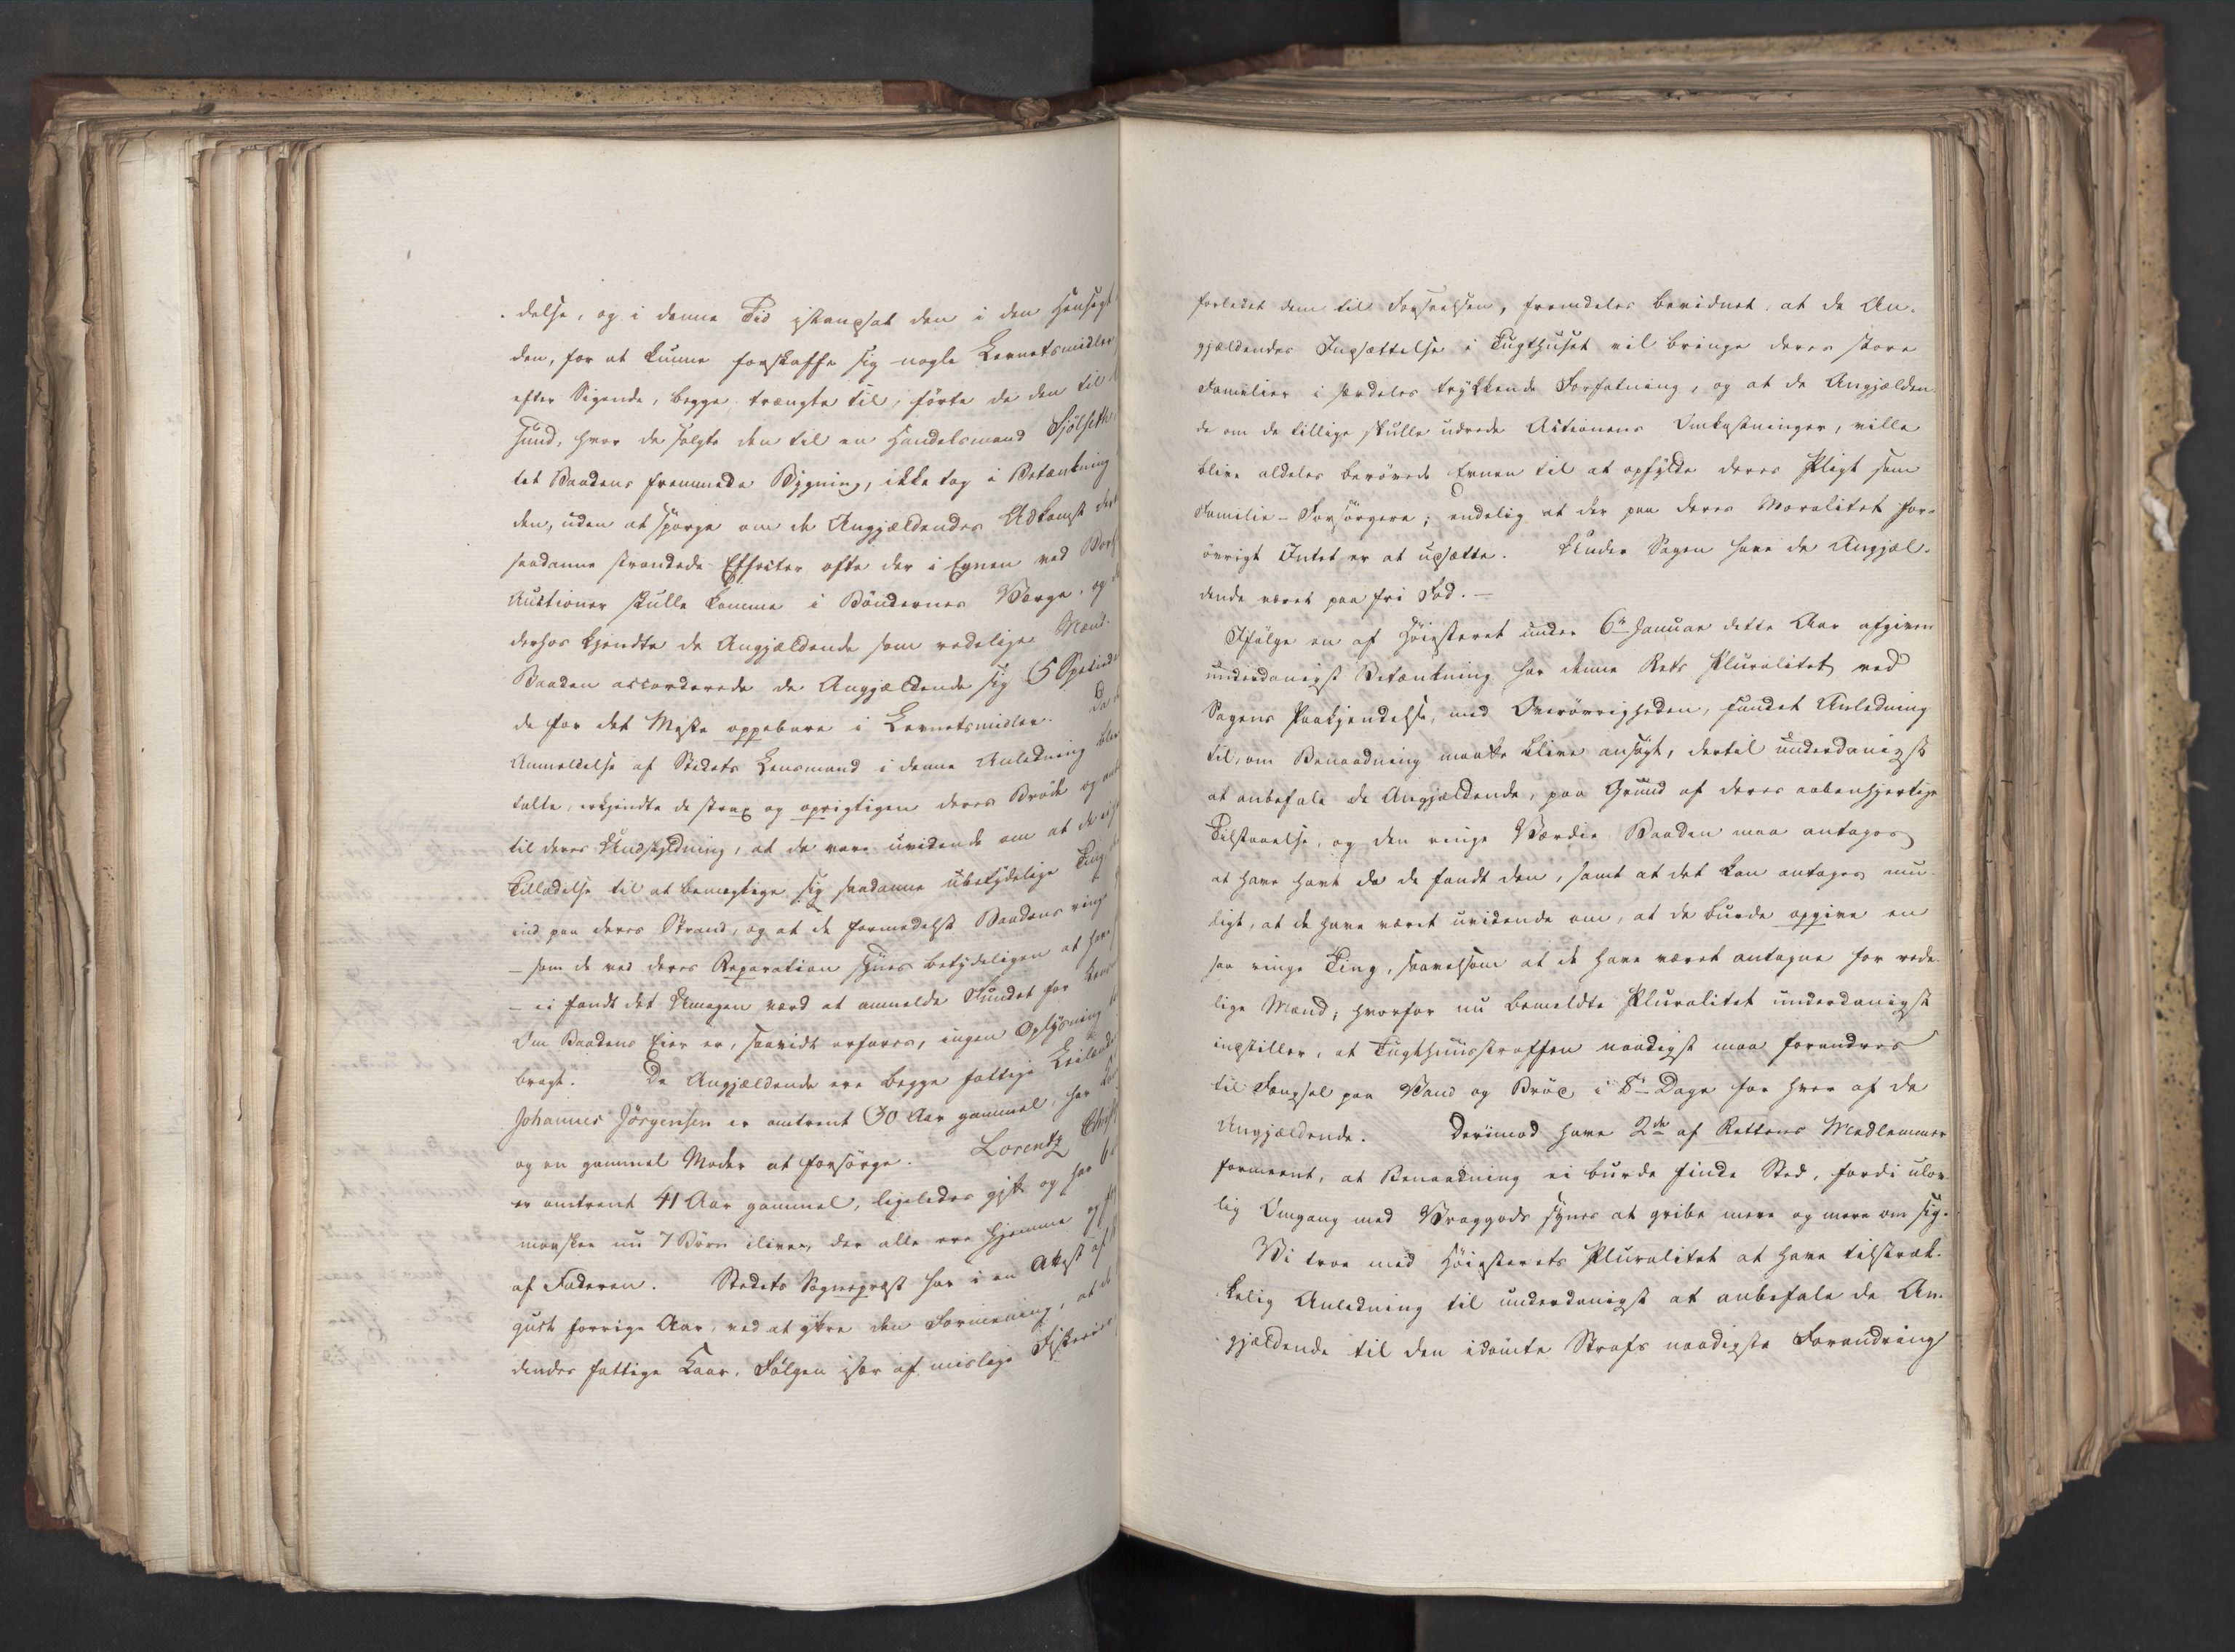 delse, og i denne Tid istandsat den i den Hensigt
den, for at kunne forskaffe sig nogle Levnetsmidler
efter Sigende, begge trængte til, førte de den til
sund, hvor de solgte den til en Handelsmand Sjølseth
tet Baadens fremmede Bygning, ikke tog i Betænkning
den, uden at spørge om de Angjældendes Adkomst der
saadanne strandede Effecter ofte der i Egnen ved
Auctioner skulle komme i Bøndernes Værge, og
derhos kjendte de Angjældende som redelige Mænd.
Baaden accorderede de Angjældende sig 5 Specied
de for det Meste oppebare i Levnetsmidler. Da
Anmeldelse af Stedets Lensmand i denne Anledning blev
talte, erkjendte de strax og oprigtigen deres Brøde og
til deres Undskyldning, at de vare uvidende om at de
Tilladelse til at bemægtige sig saadanne ubetydelige Ting
ind paa deres Strand, og at de formedelst Baadens ringe
– som de ved deres Reparation synes betydeligen at
– ei fandt det Umagen værd at anmelde Fundet for
Om Baadens Eier er, saavidt erfares, ingen Oplysning
bragt. De Angjældende ere begge fattige Leilænd
Johannes Jörgensen er omtrent 30 Aar gammel, har
og en gammel Moder at forsørge. Lorentz Chris
er omtrent 41 Aar gammel, ligeledes gift og har 6
maaskee nu 7 Børn ilive, der alle ere hjemme og
af Faderen. Stedets Sognepræst har i en Attest af
gust forrige Aar, ved at yttre den Formening, at de
dendes fattige Kaar, Følgen især af mislige Fiskerier
forledet dem til Forseelsen, fremdeles bevidnet, at de An-
gjældendes Indsættelse i Tugthuset vil bringe deres store
Familier i særdeles trykkende Forfatning, og at de Angjælden
de om de tillige skulle udrede Actionens Omkostninger, ville
blive aldeles berøvede Evnen til at opfylde deres Pligt som
Familie-Forsørgere; endelig at der paa deres Moralitet for-
øvrigt Intet er at udsætte. Under Sagen have de Angjæl-
dende været paa fri Fod. —
Ifølge en af Høiesteret under 6te Januar dette Aar afgiven
underdanigst Betænkning har denne Rets Pluralitet ved
Sagens Paakjendelse, med Overøvrigheden, fundet Anledning
til, om Benaadning maatte blive ansøgt, dertil underdanigst
at anbefale de Angjældende, paa Grund af deres aabenhjertige
Tilstaaelse, og den ringe Værdie Baaden maa antages
at have havt da de fandt den, samt at det kan antages mu-
ligt, at de have været uvidende om, at de burde opgive en
saa ringe Ting, saavelsom at de have været antagne for rede-
lige Mænd; hvorfor nu bemeldte Pluralitet underdanigst
indstiller, at Tugthuusstraffen naadigst maa forandres
til Fængsel paa Vand og Brød i 8te Dage for hver af de
Angjældende. Derimod have 2de af Rettens Medlemmer
formeent, at Benaadning ei burde finde Sted, fordi ulov-
lig Omgang med Vraggods synes at gribe mere og mere om sig.
Vi troe med Høiesterets Pluralitet at have tilstræk-
kelig Anledning til underdanigst at anbefale de An-
gjældende til den idømte Strafs naadigste Forandring